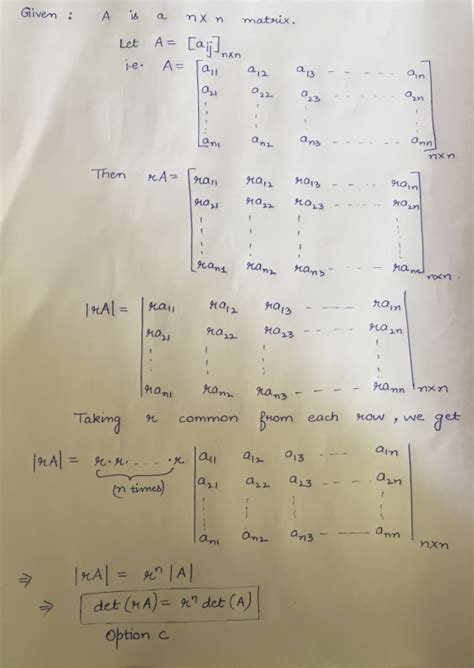 Given : A is a n×n matrix.
Let A = [aij]n×n
i.e. A = [a11 a12 a13 - - - - - a1n
a21 a22 a23 - - - - a2n
⋮ ⋮ ⋮ ⋮
an1 an2 an3 - - - - - ann]n×n
Then rA = [ra11 ra12 ra13 - - - - ra1n
ra21 ra22 ra23 - - - - ra2n
⋮ ⋮ ⋮ ⋮
ran1 ran2 ran3 - - - - rann]n×n
|rA| = |ra11 ra12 ra13 - - - - ra1n
ra21 ra22 ra23 - - - - ra2n
⋮ ⋮ ⋮ ⋮
ran1 ran2 ran3 - - - - rann|n×n
Taking r common from each row, we get
|rA| = r.r. . . . . .r |a11 a12 a13 - - - - a1n
(n times) a21 a22 a23 - - - - a2n
⋮ ⋮ ⋮ ⋮
an1 an2 an3 - - - - ann|n×n
⇒ |rA| = rⁿ |A|
⇒ det (rA) = rⁿ det (A)
Option c